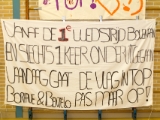 VANAF DE 1e WEDSTRIJD BOVENAAN
EN SLECHTS 1 KEER ONDERUITGEGAAN
VANDAAG GAAT DE VLAG IN TOP
PAS MAAR OP!!